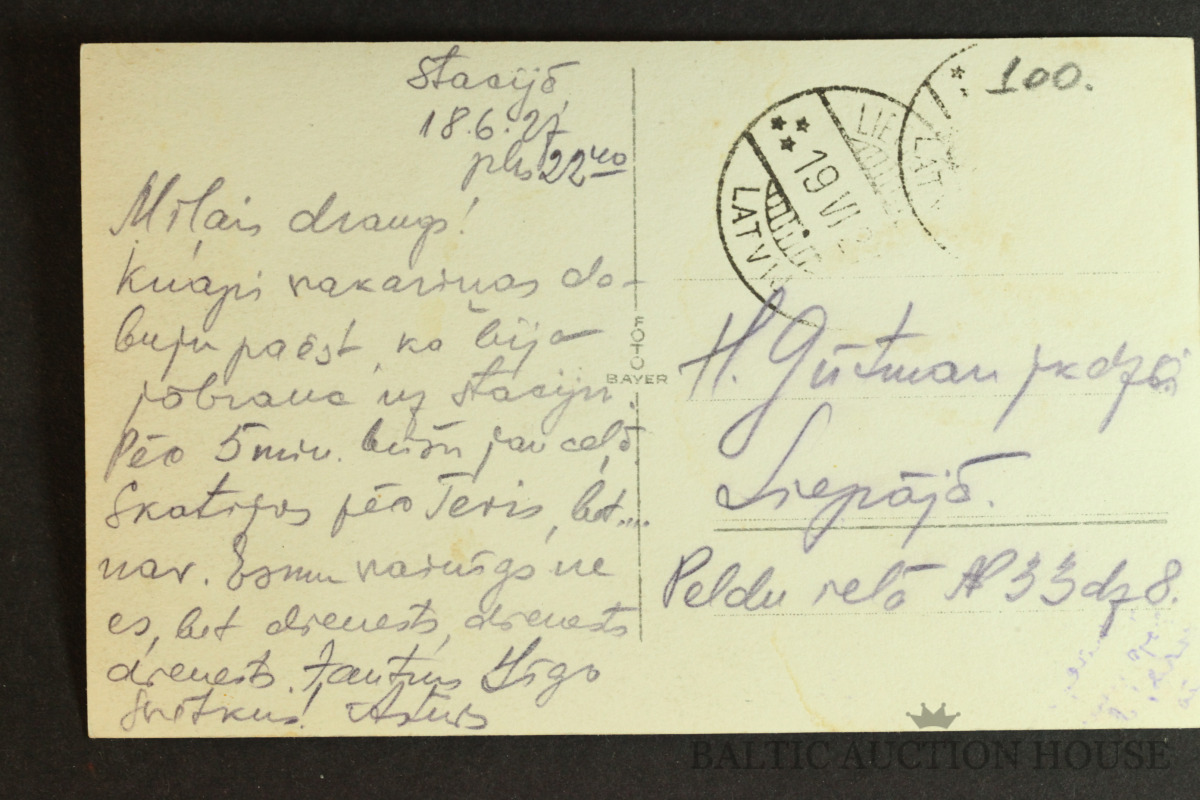 Stacijā
18.6.27,
plk 22⁴⁰
Mīļais draugs!
Knapi vakariņas da-
buju paēst, ka bija
jābrauc uz staciju.
Pēc 5 min. būšu jau ceļā.
Skatījos pēc Tevis, bet....
nav. Esmu vainīgs ne
es, bet dienests, dienests
dienests. Jautrus Līgo
Svētkus!
FOTO
BAYER
100.
LATVIJA
19 VI
LIE
LATV
H. Gūtman jkdzei
Liepājā.
Peldu ielā № 33 dz 8.
BALTIC AUCTION HOUSE